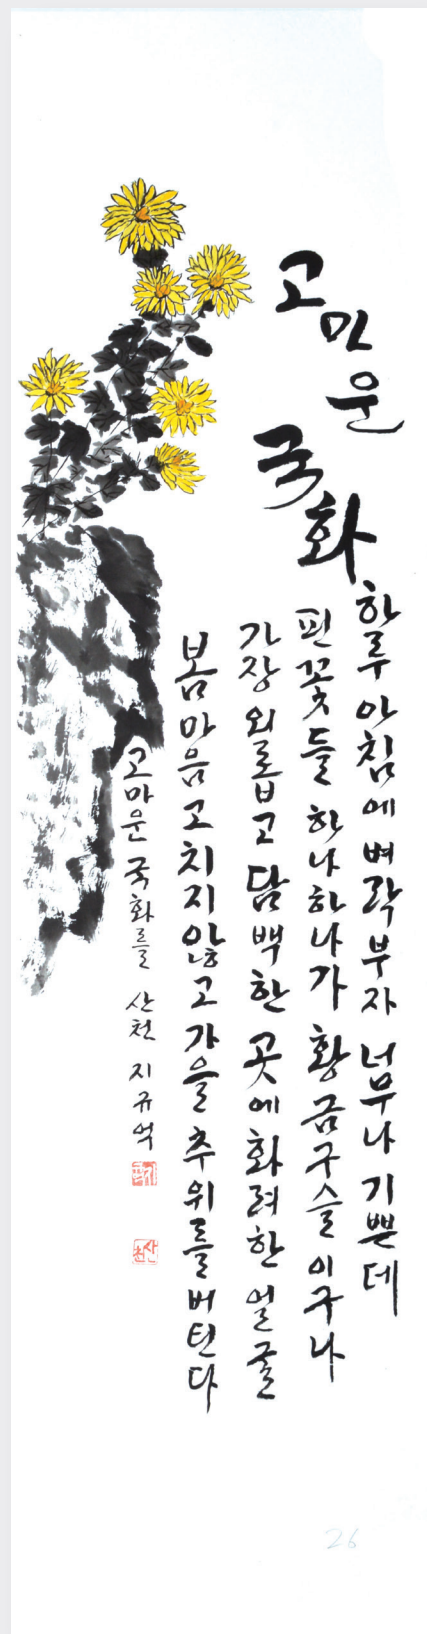 고마운
국화
하루 아침에 벼락부자 너무나 기쁜데
핀 꽃들 하나하나가 황금구슬이구나
가장 외롭고 담백한 곳에 화려한 얼굴
봄 마음 고치지 않고 가을 추위를 버틴다
고마운 국화를 산천 지규억
산천
26